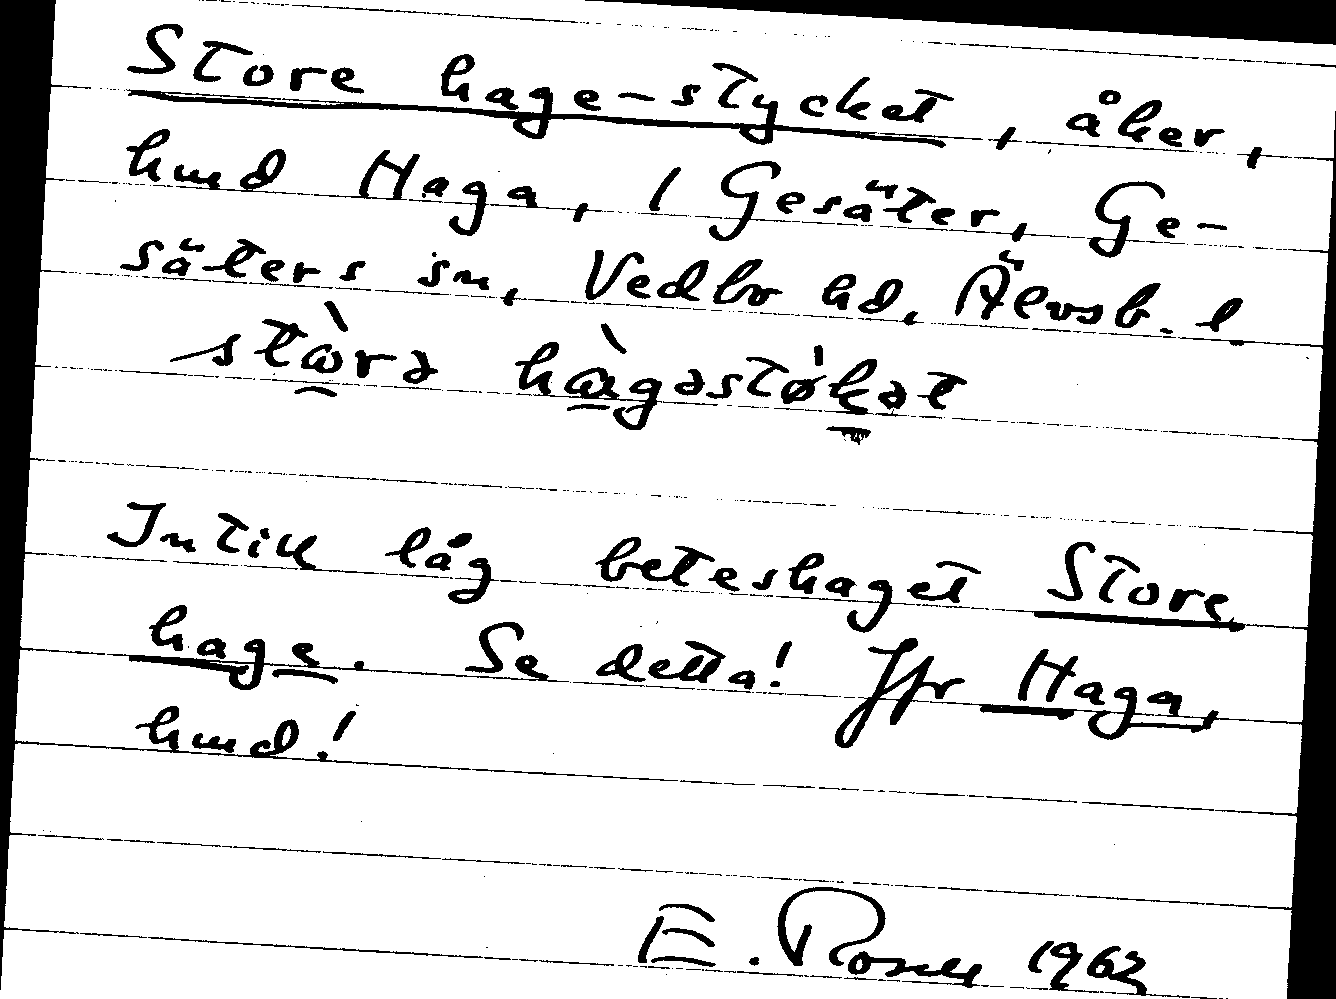 Store hage-stycket, åker,
hmd Haga, 1 Gesäter, Ge-
säters sn, Vedbo hd, Älvsb. l.
stɷ̀rə hɑ̀gəstø̀k̠ət
Intill låg beteshaget Store
hage. Se detta! Jfr Haga,
hmd!
E. Rosell 1962